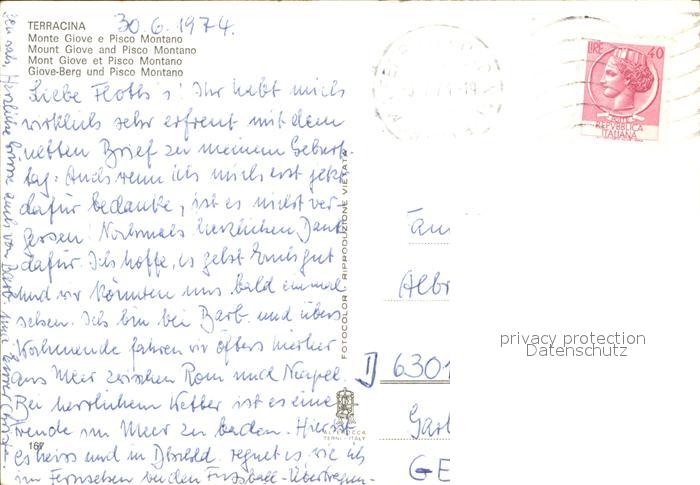 TERRACINA
30.6.1974.
Monte Giove e Pisco Montano
Mount Giove and Pisco Montano
Mont Giove et Pisco Montano
Giove-Berg und Pisco Montano
Liebe Floth's! Ihr habt mich
wirklich sehr erfreut mit dem
netten Brief zu meinem Geburts-
tag. Auch wenn ich mich erst jetzt
dafür bedanke, ist es nicht ver-
gessen! Nochmals herzlichen Dank
dafür. Ich hoffe, es geht Euch gut
und wir könnten uns bald einmal
sehen. Ich bin bei Barb. und übers
Wochenende fahren wir öfters hierher
ans Meer zwischen Rom und Neapel.
Bei herrlichem Wetter ist es eine
Freude im Meer zu baden. Hier ist
es heiss und in Dtschld. regnet es wie ich
im Fernsehen bei den Fussball-Übertragun-
gen sah. Herzliche Grüsse auch von Barb.
167
FOTOCOLOR - RIPRODUZIONE VIETATA
TERNI - ITALY
LIRE 40
POSTE
REPVBBLICA
ITALIANA
Fam
Albr
D 6301
GE
privacy protection
Datenschutz